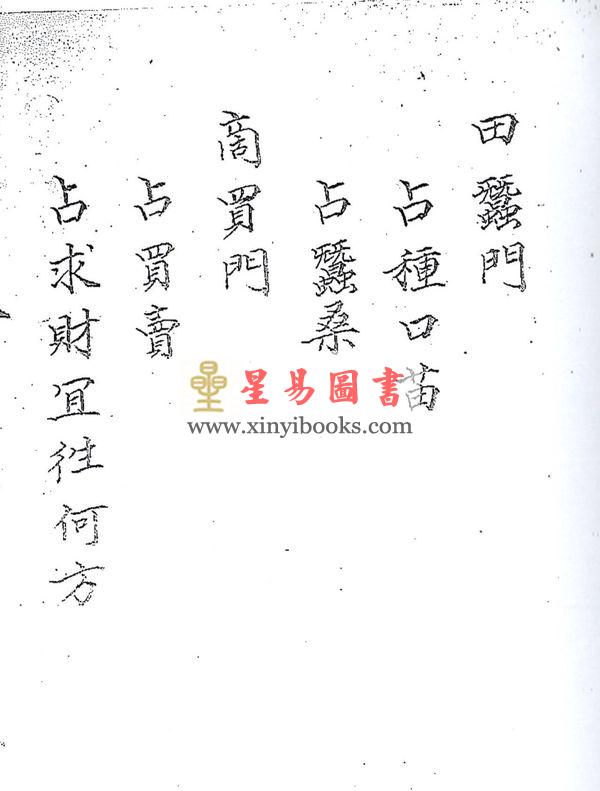 田蠶門
占種口苗
占蠶桑
商買門
占買賣
占求財宜往何方
星易圖書
www.xinyibooks.com